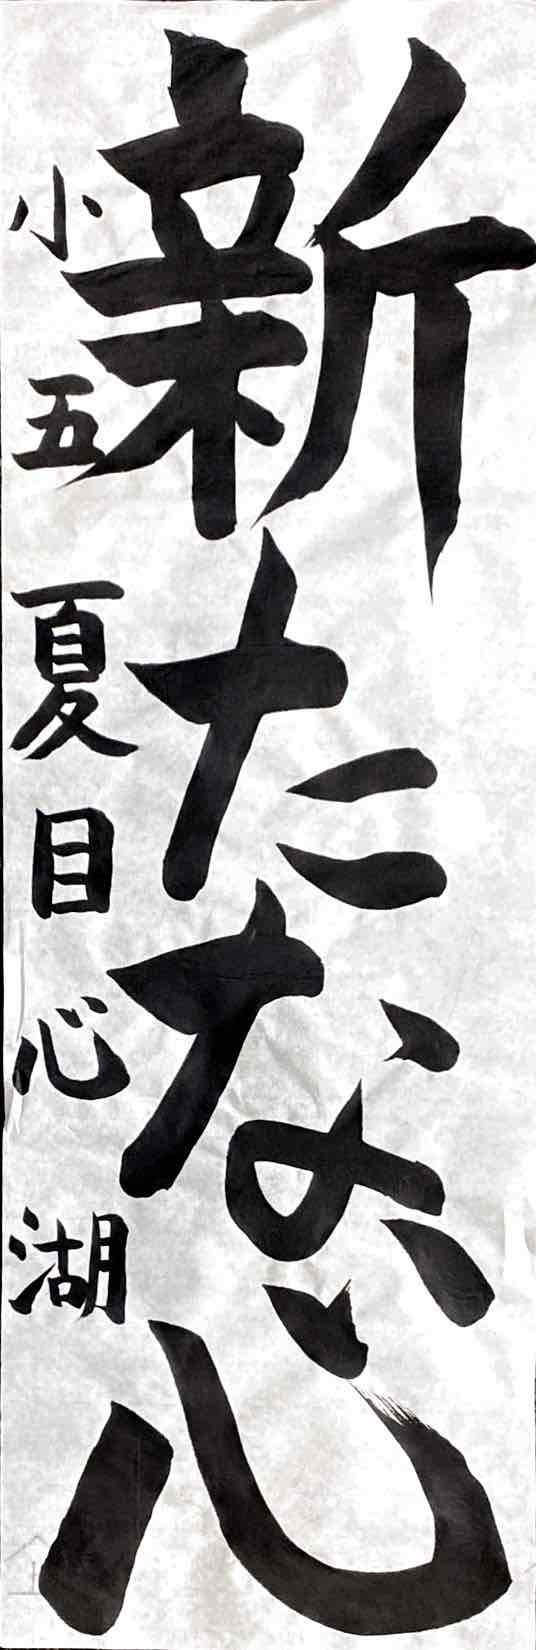 新たな心
小五 夏目心湖